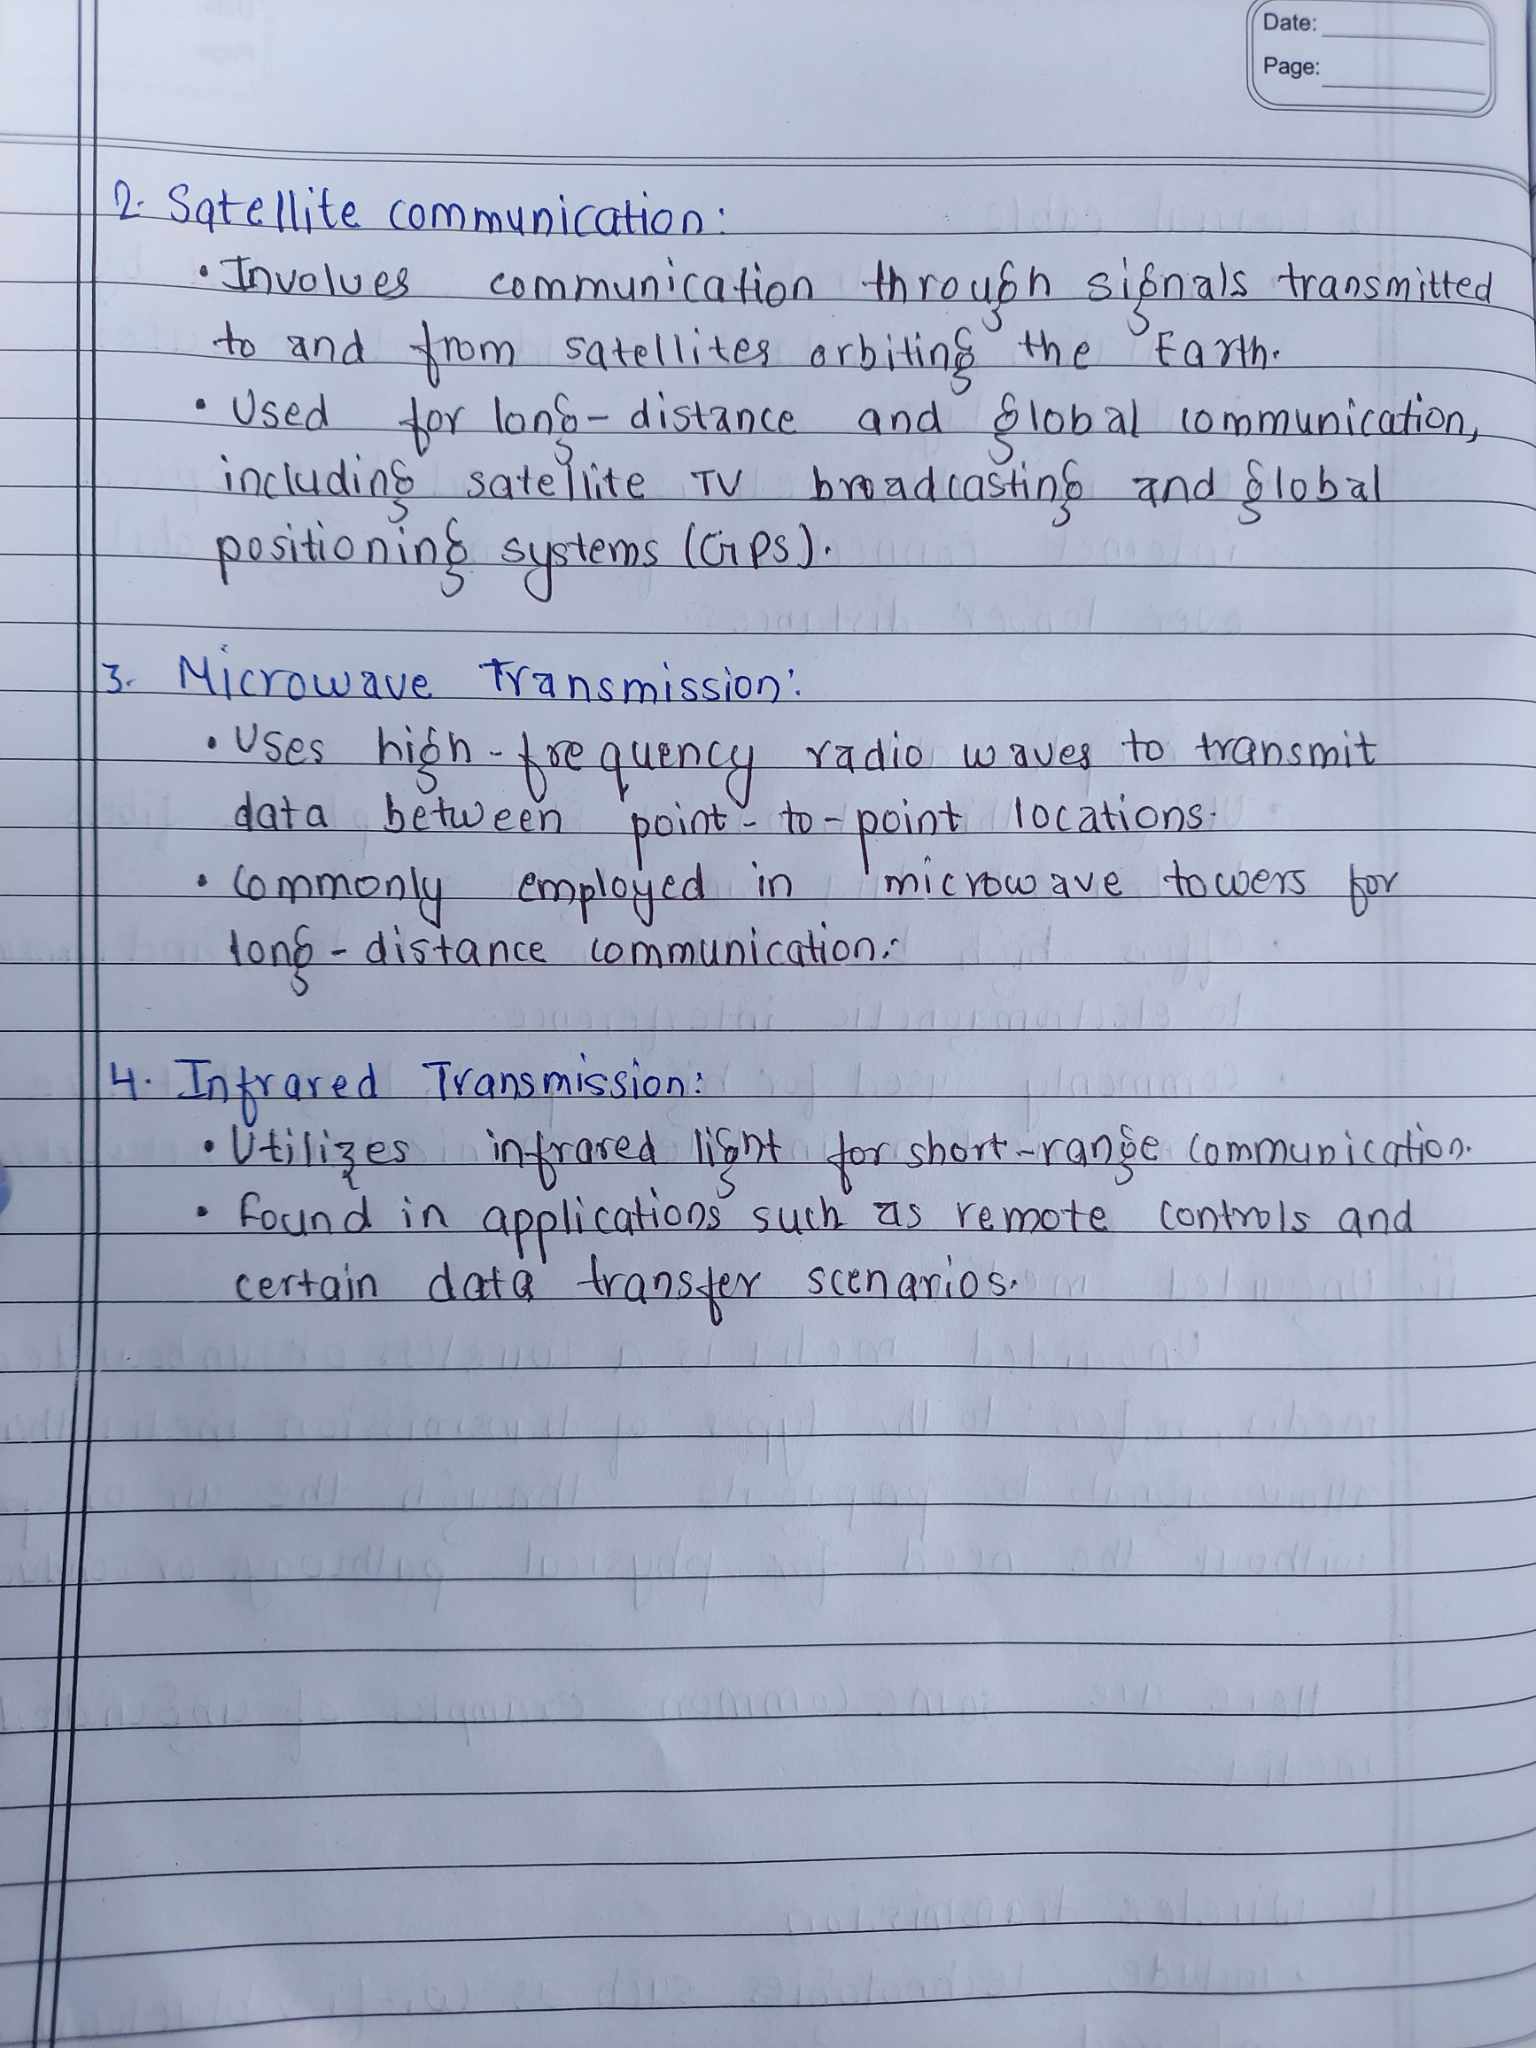 Date:
Page:
2. Satellite communication:
• Involves communication through signals transmitted
to and from satellites orbiting the Earth.
• Used for long-distance and global communication,
including satellite TV broadcasting and global
positioning systems (GPS).
3. Microwave Transmission:
• Uses high-frequency radio waves to transmit
data between point-to-point locations.
• Commonly employed in microwave towers for
long-distance communication.
4. Infrared Transmission:
• Utilizes infrared light for short-range communication.
• Found in applications such as remote controls and
certain data transfer scenarios.